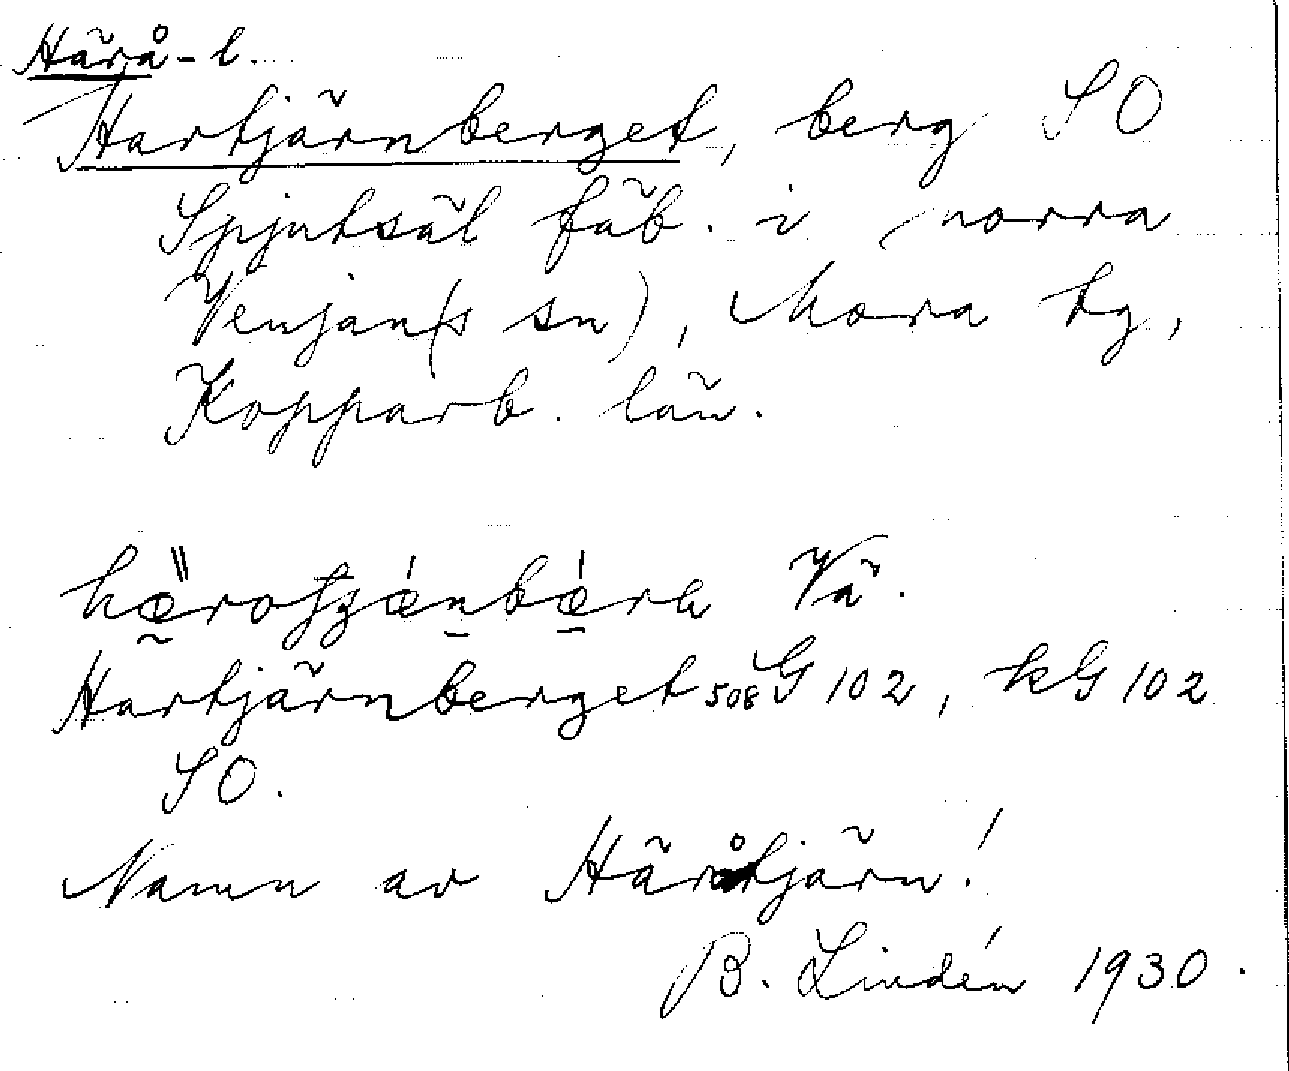 Härå-l.
Hartjärnberget, berg SO
Spjutsäl fäb. i norra
Venjan(s sn), Mora tg,
Kopparb. län.
Vä.
Hartjärnberget 508 G 102, kG 102
SO.
Namn av Häråtjärn!
B. Lindén 1930.